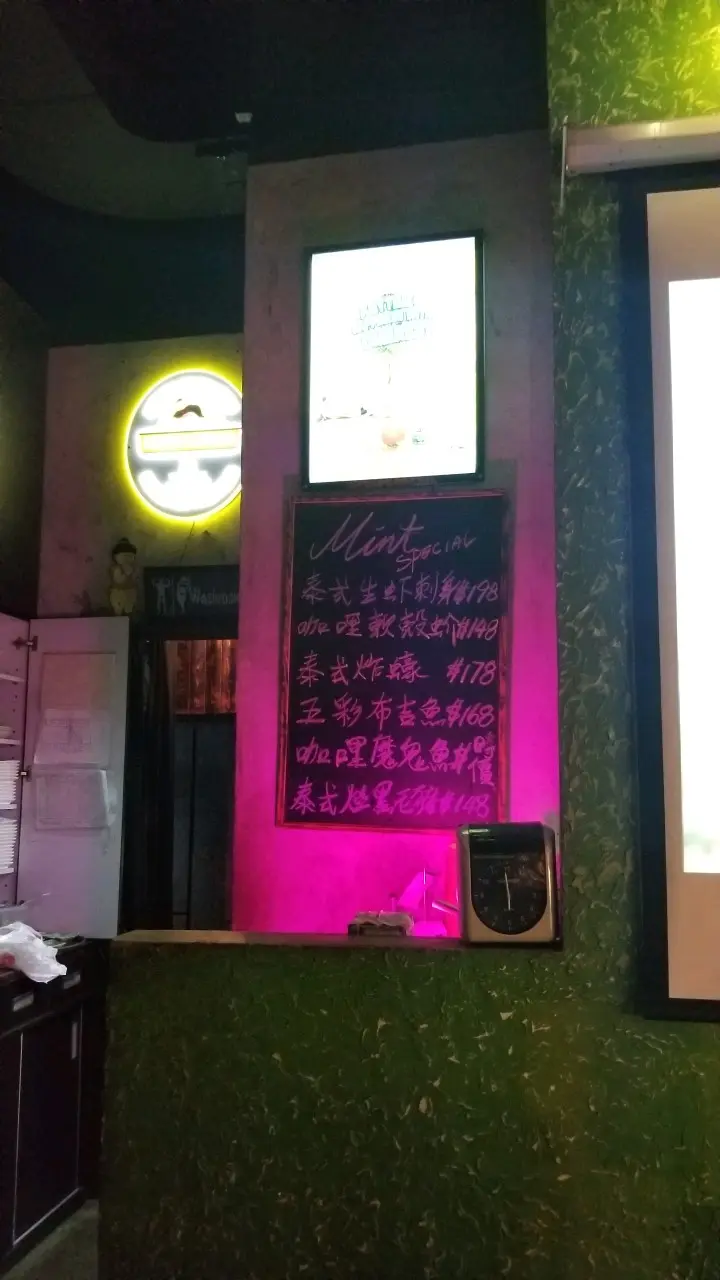 Mint
SPECIAL
泰式生虾刺身$198
咖哩軟殼蚧$148
泰式炸蠔 $178
五彩布吉魚$168
咖哩魔鬼魚$時價
泰式燒黑毛豬$148
Washroom